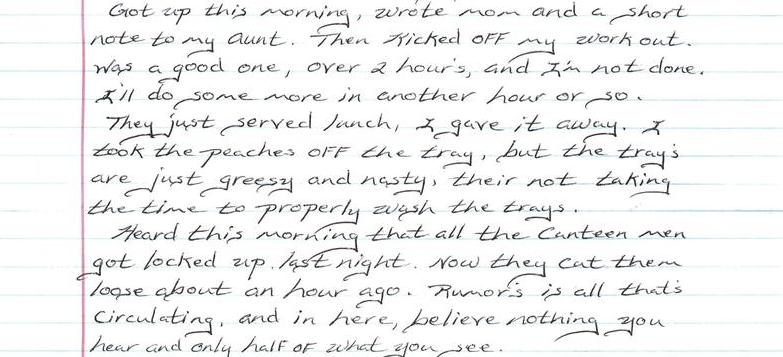 Got up this morning, wrote mom and a short
note to my aunt. Then Kicked OFF my work out.
Was a good one, over 2 hour's, and I'm not done.
I'll do some more in another hour or so.
They just served lunch, I gave it away. I
took the peaches OFF the tray, but the tray's
are just greesy and nasty, their not taking
the time to properly wash the trays.
Heard this morning that all the Canteen men
got locked up last night. Now they cut them
loose about an hour ago. Rumor's is all that's
Circulating, and in here, believe nothing you
hear and only half of what you see.